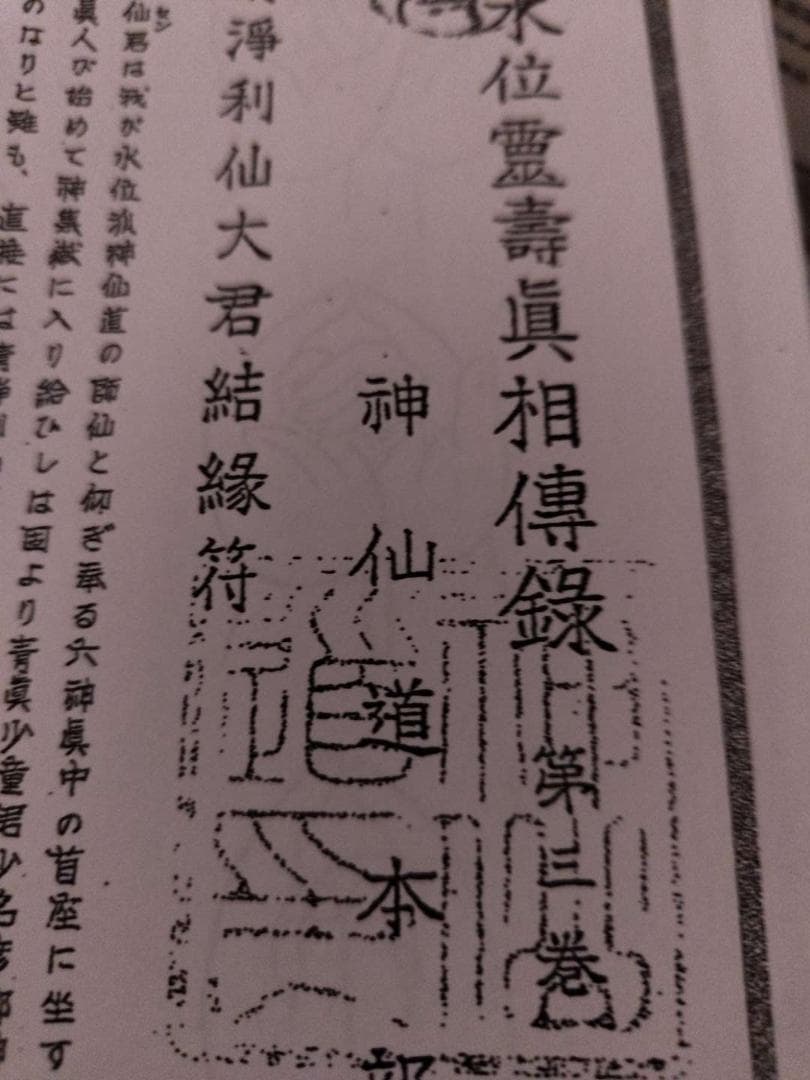 水位靈壽眞相傳錄 第三巻
神仙道本部
淨利仙大君結緣符
仙君は我が水位派神仙道の師仙と仰ぎ奉る六神眞中の首座に坐す
眞人が始めて神集嶽に入り給ひしは固より青眞少童君少名彦
のなりと雖も、直接には青